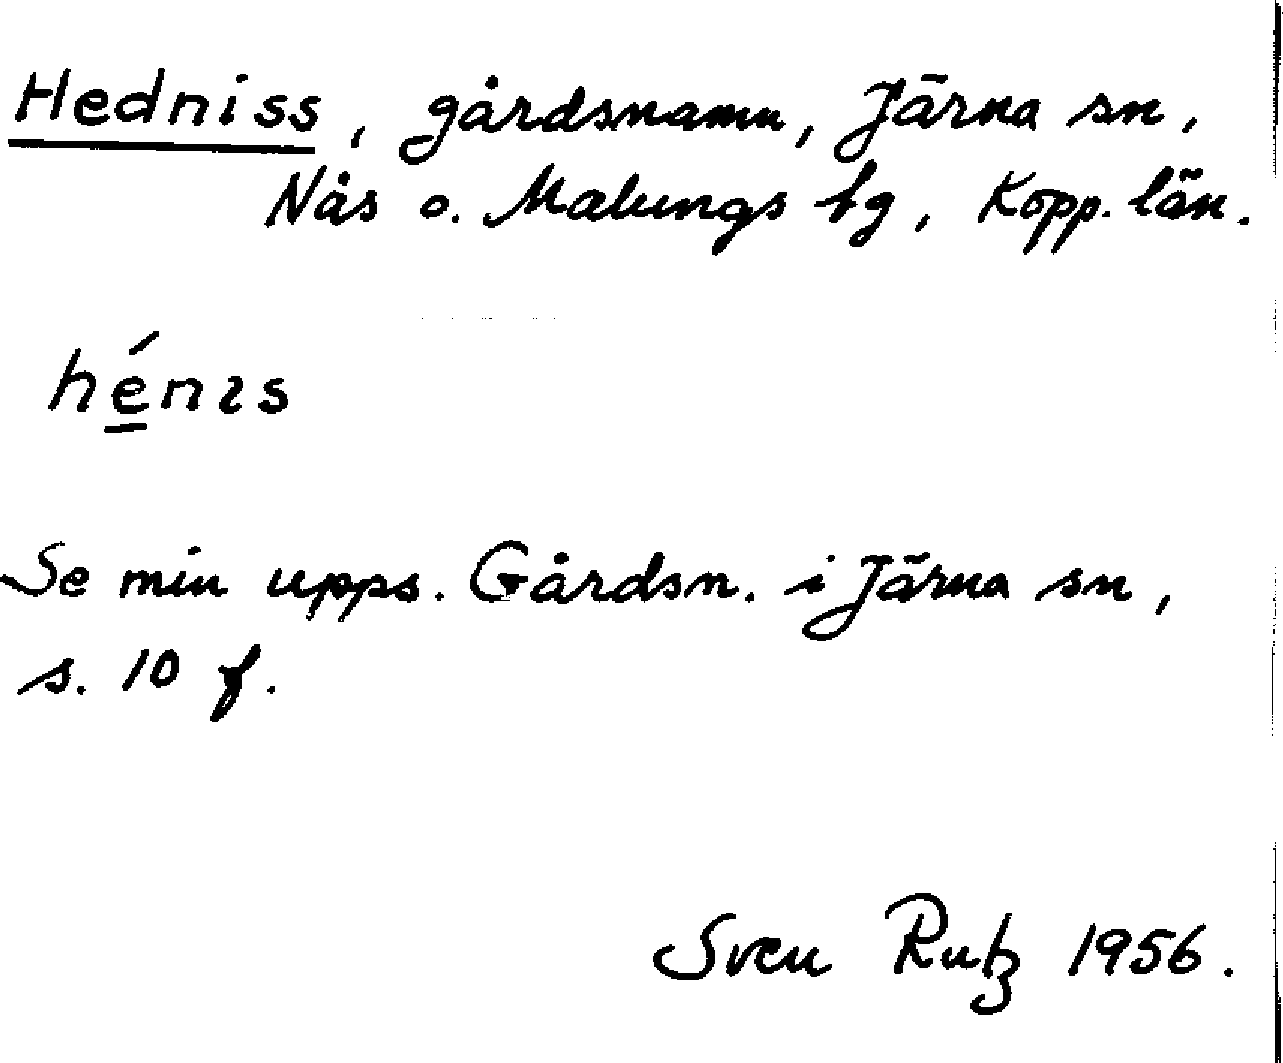 Hedniss, gårdsnamn, Järna sn,
Nås o. Malungs tg, Kopp. län.
hé̠nɩs
Se min upps. Gårdsn. i Järna sn,
s. 10 f.
Sven Rutz 1956.